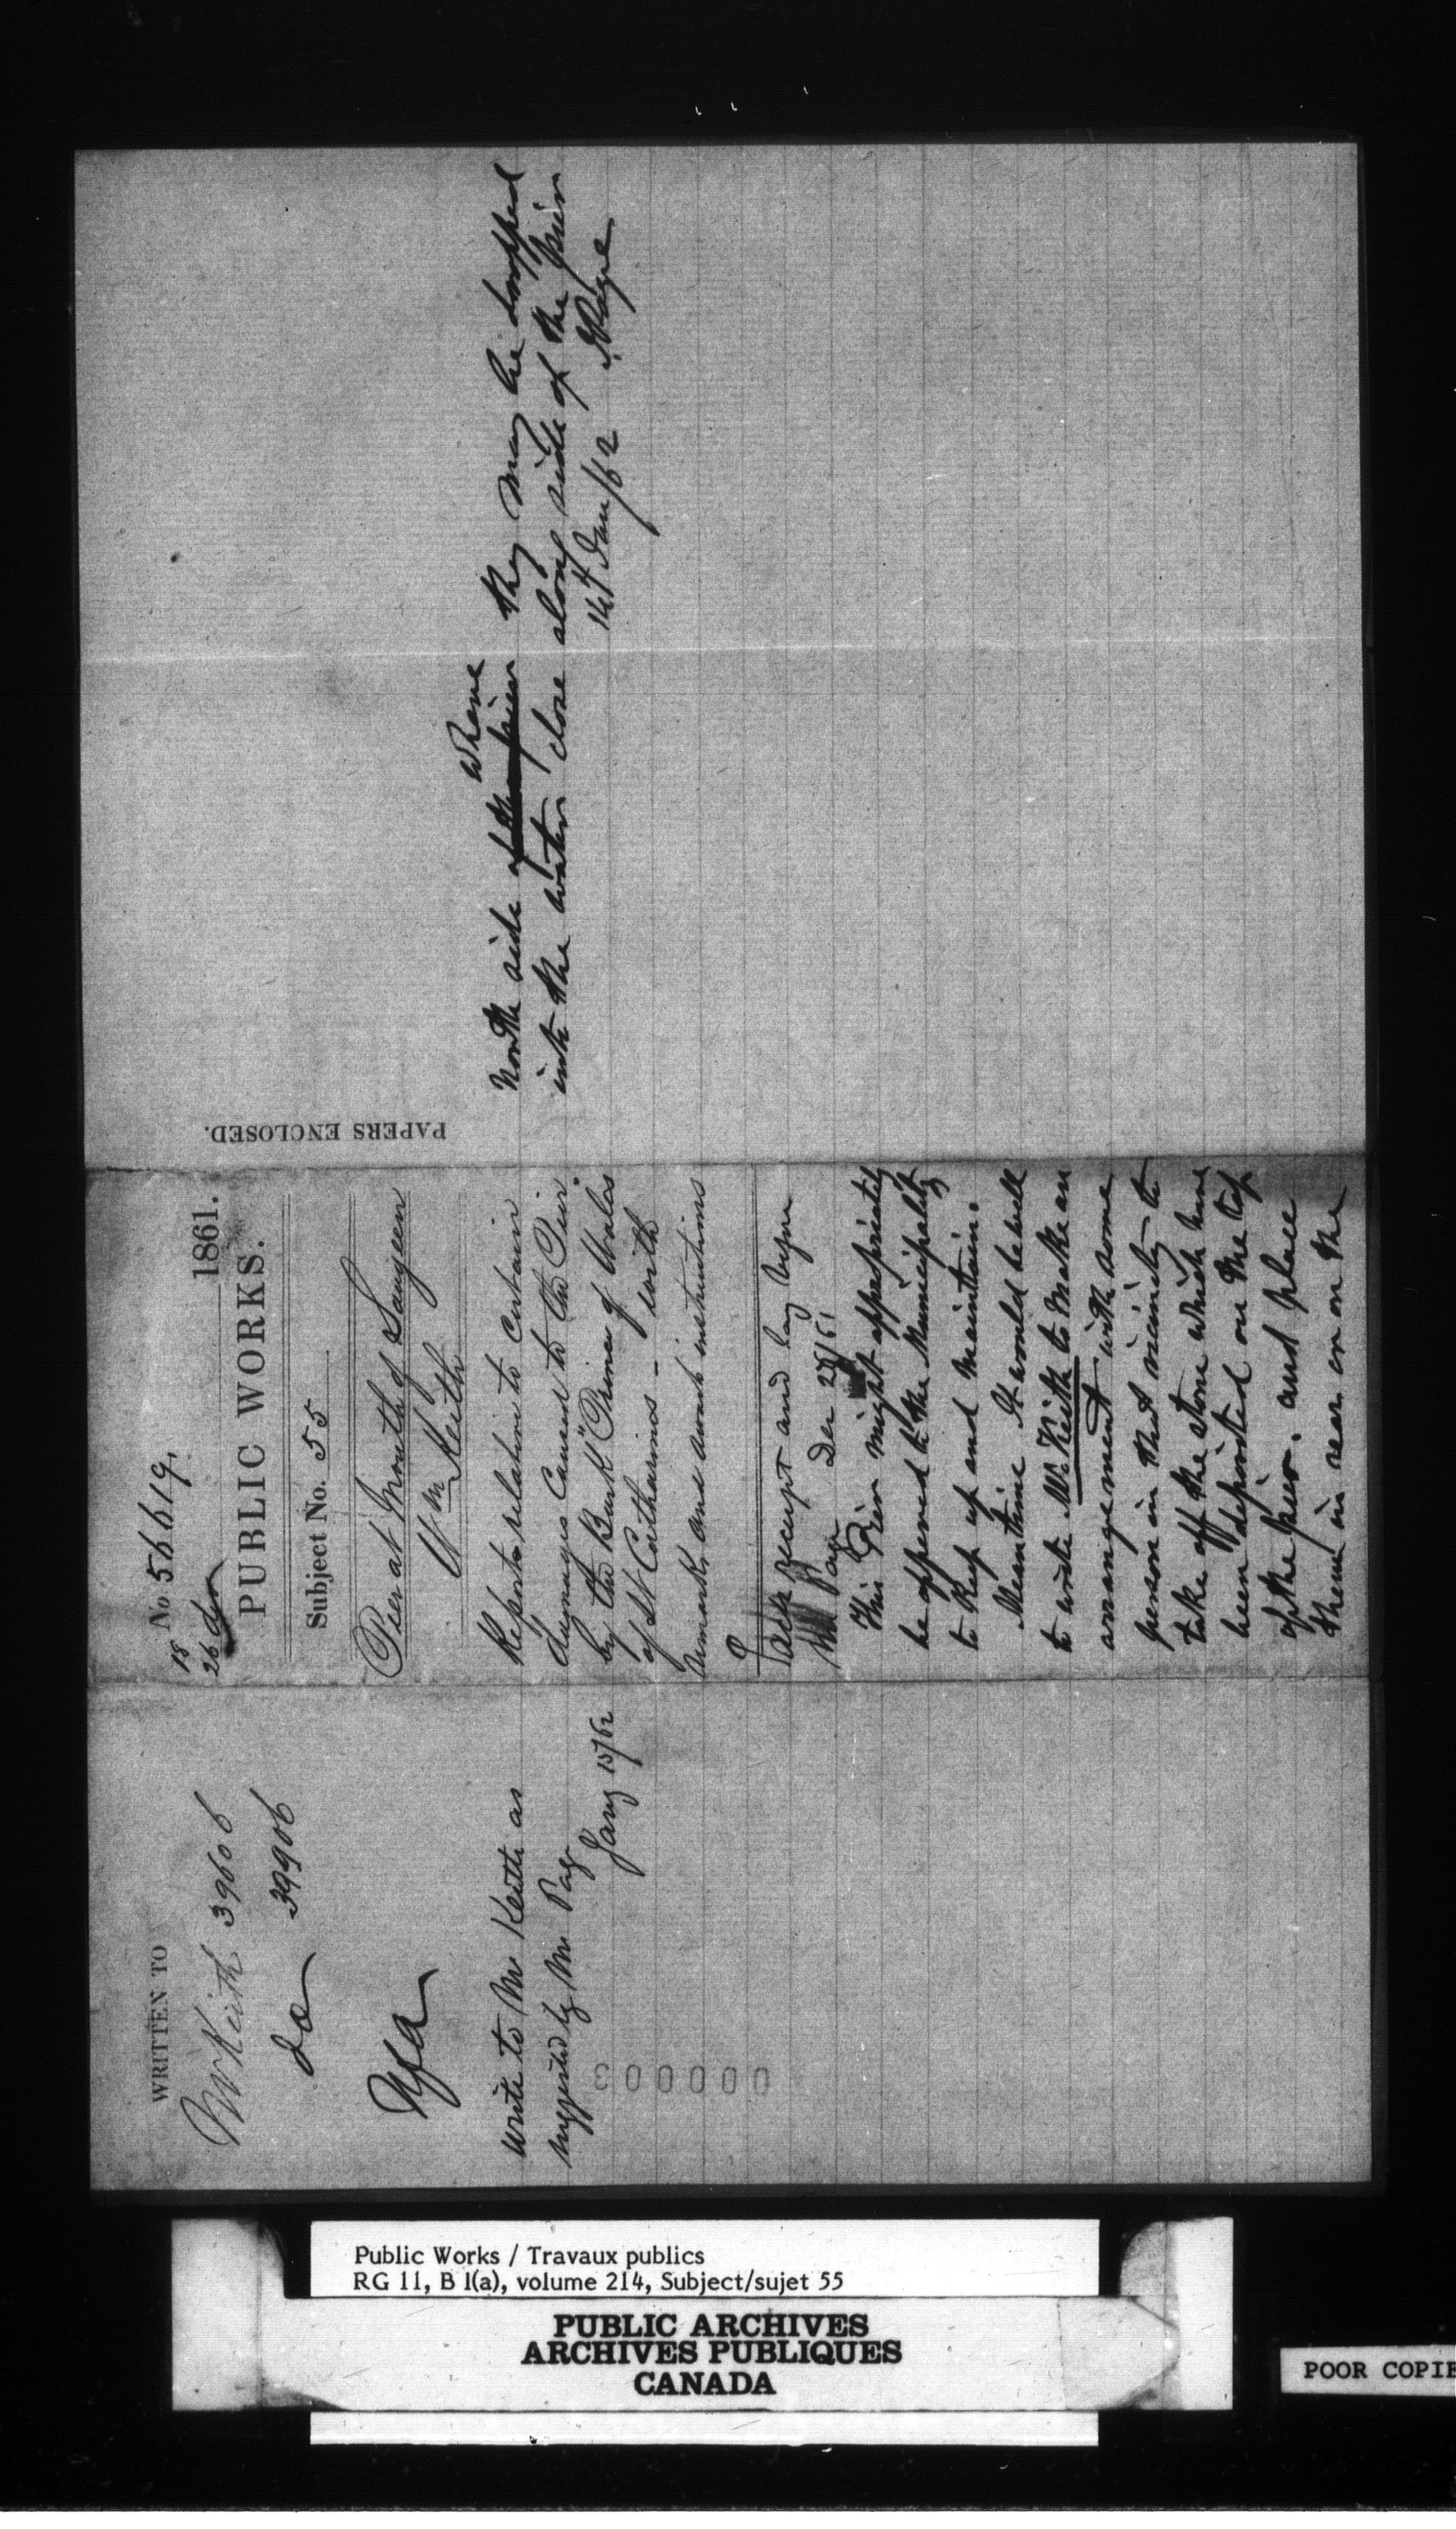 WRITTEN TO
Mr Keith 39606
Do 39906
Write to Mr Keith as
suggested by Mr Page
Jany 15/62
000003
18 No 56619. 1861.
26
PUBLIC WORKS.
Subject No. 55
Pier at Mouth of Saugeen
Wm Keith
Reports relation to Certain
damages Caused to the Pier
by the Bark "Prince of Wales"
of St Catharines – with
remarks and await instructions
receipt and lay before
Mr Page Dec 28/61
This Pier might appropriately
be offered to the Municipality
to Keep up and Maintain.
Meantime It would be well
to write Mr Keith to Make an
arrangement with some
person in that vicinity to
take off the stone which have
been deposited on the top
of the pier. and place
them in rear or on the
PAPERS ENCLOSED.
where
North side of the pier they may be dropped
into the water close along side of the pier
14th Jan/62 J Page
Public Works / Travaux publics
RG 11, B 1(a), volume 214, Subject/sujet 55
PUBLIC ARCHIVES
ARCHIVES PUBLIQUES
CANADA
POOR COPIE